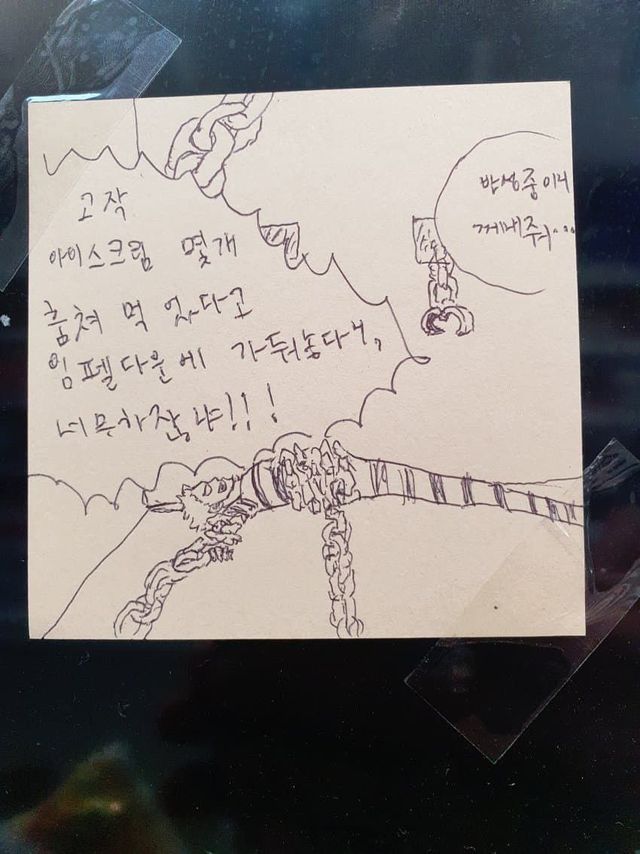 고작
아이스크림 몇개
훔쳐 먹었다고
임펠다운에 가둬놓다니,
너무하잖냐!!!
반성중이니
꺼내줘...